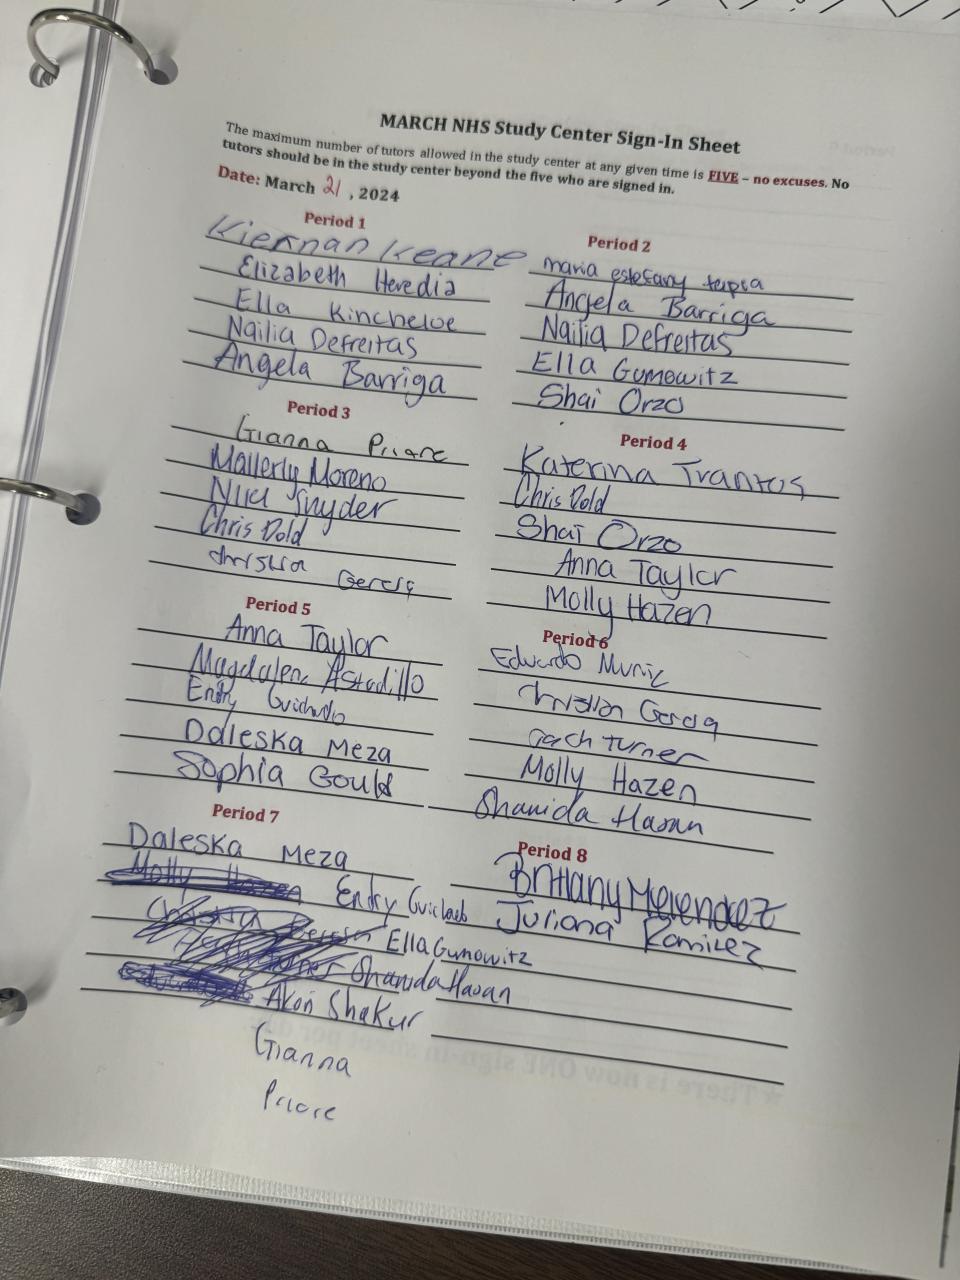 MARCH NHS Study Center Sign-In Sheet
The maximum number of tutors allowed in the study center at any given time is FIVE – no excuses. No
tutors should be in the study center beyond the five who are signed in.
Date: March 21, 2024
Period 1
Kiernan Keane
Elizabeth Heredia
Ella Kincheloe
Nailia Defreitas
Angela Barriga
Period 2
maria estefany tapia
Angela Barriga
Nailia Defreitas
Ella Gumowitz
Shai Orzo
Period 3
Gianna Priore
Mallerly Moreno
Snyder
Chris Dold
Christian Garcia
Period 4
Katerina Trantos
Chris Dold
Shai Orzo
Anna Taylor
Molly Hazen
Period 5
Anna Taylor
Magdalena Astudillo
Endry Guichardo
Daleska Meza
Sophia Gould
Period 6
Eduardo Muniz
Christian Garcia
Zach turner
Molly Hazen
Shanida Hasan
Period 7
Daleska Meza
Molly Hazen Endry
Ella Gumowitz
Shanida Hasan
Akon Shakur
Gianna
Priore
Period 8
Brittany Melendez
Juliana Ramirez
★There is now ONE sign-in sheet per day.